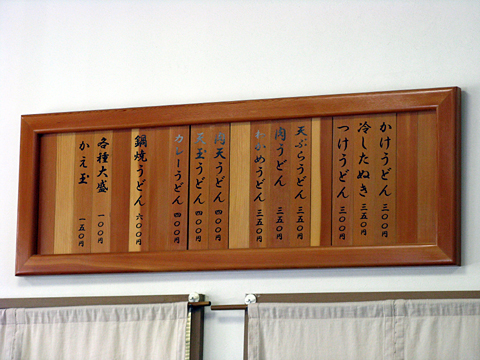 かけうどん 三〇〇円
冷したぬき 三五〇円
つけうどん 三〇〇円
天ぷらうどん 三五〇円
肉うどん 三五〇円
わかめうどん 三五〇円
肉天うどん 四〇〇円
天玉うどん 四〇〇円
カレーうどん 四〇〇円
鍋焼うどん 六〇〇円
各種大盛 一〇〇円
かえ玉 一五〇円